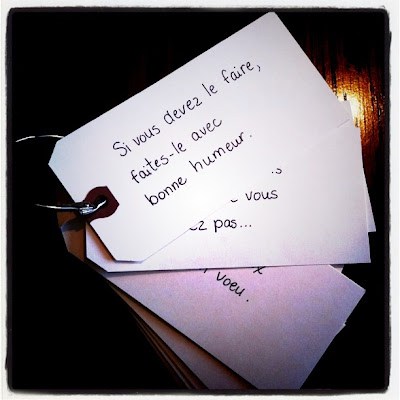 Si vous devez le faire,
faites-le avec
bonne humeur.
vous
pas...
voeu.